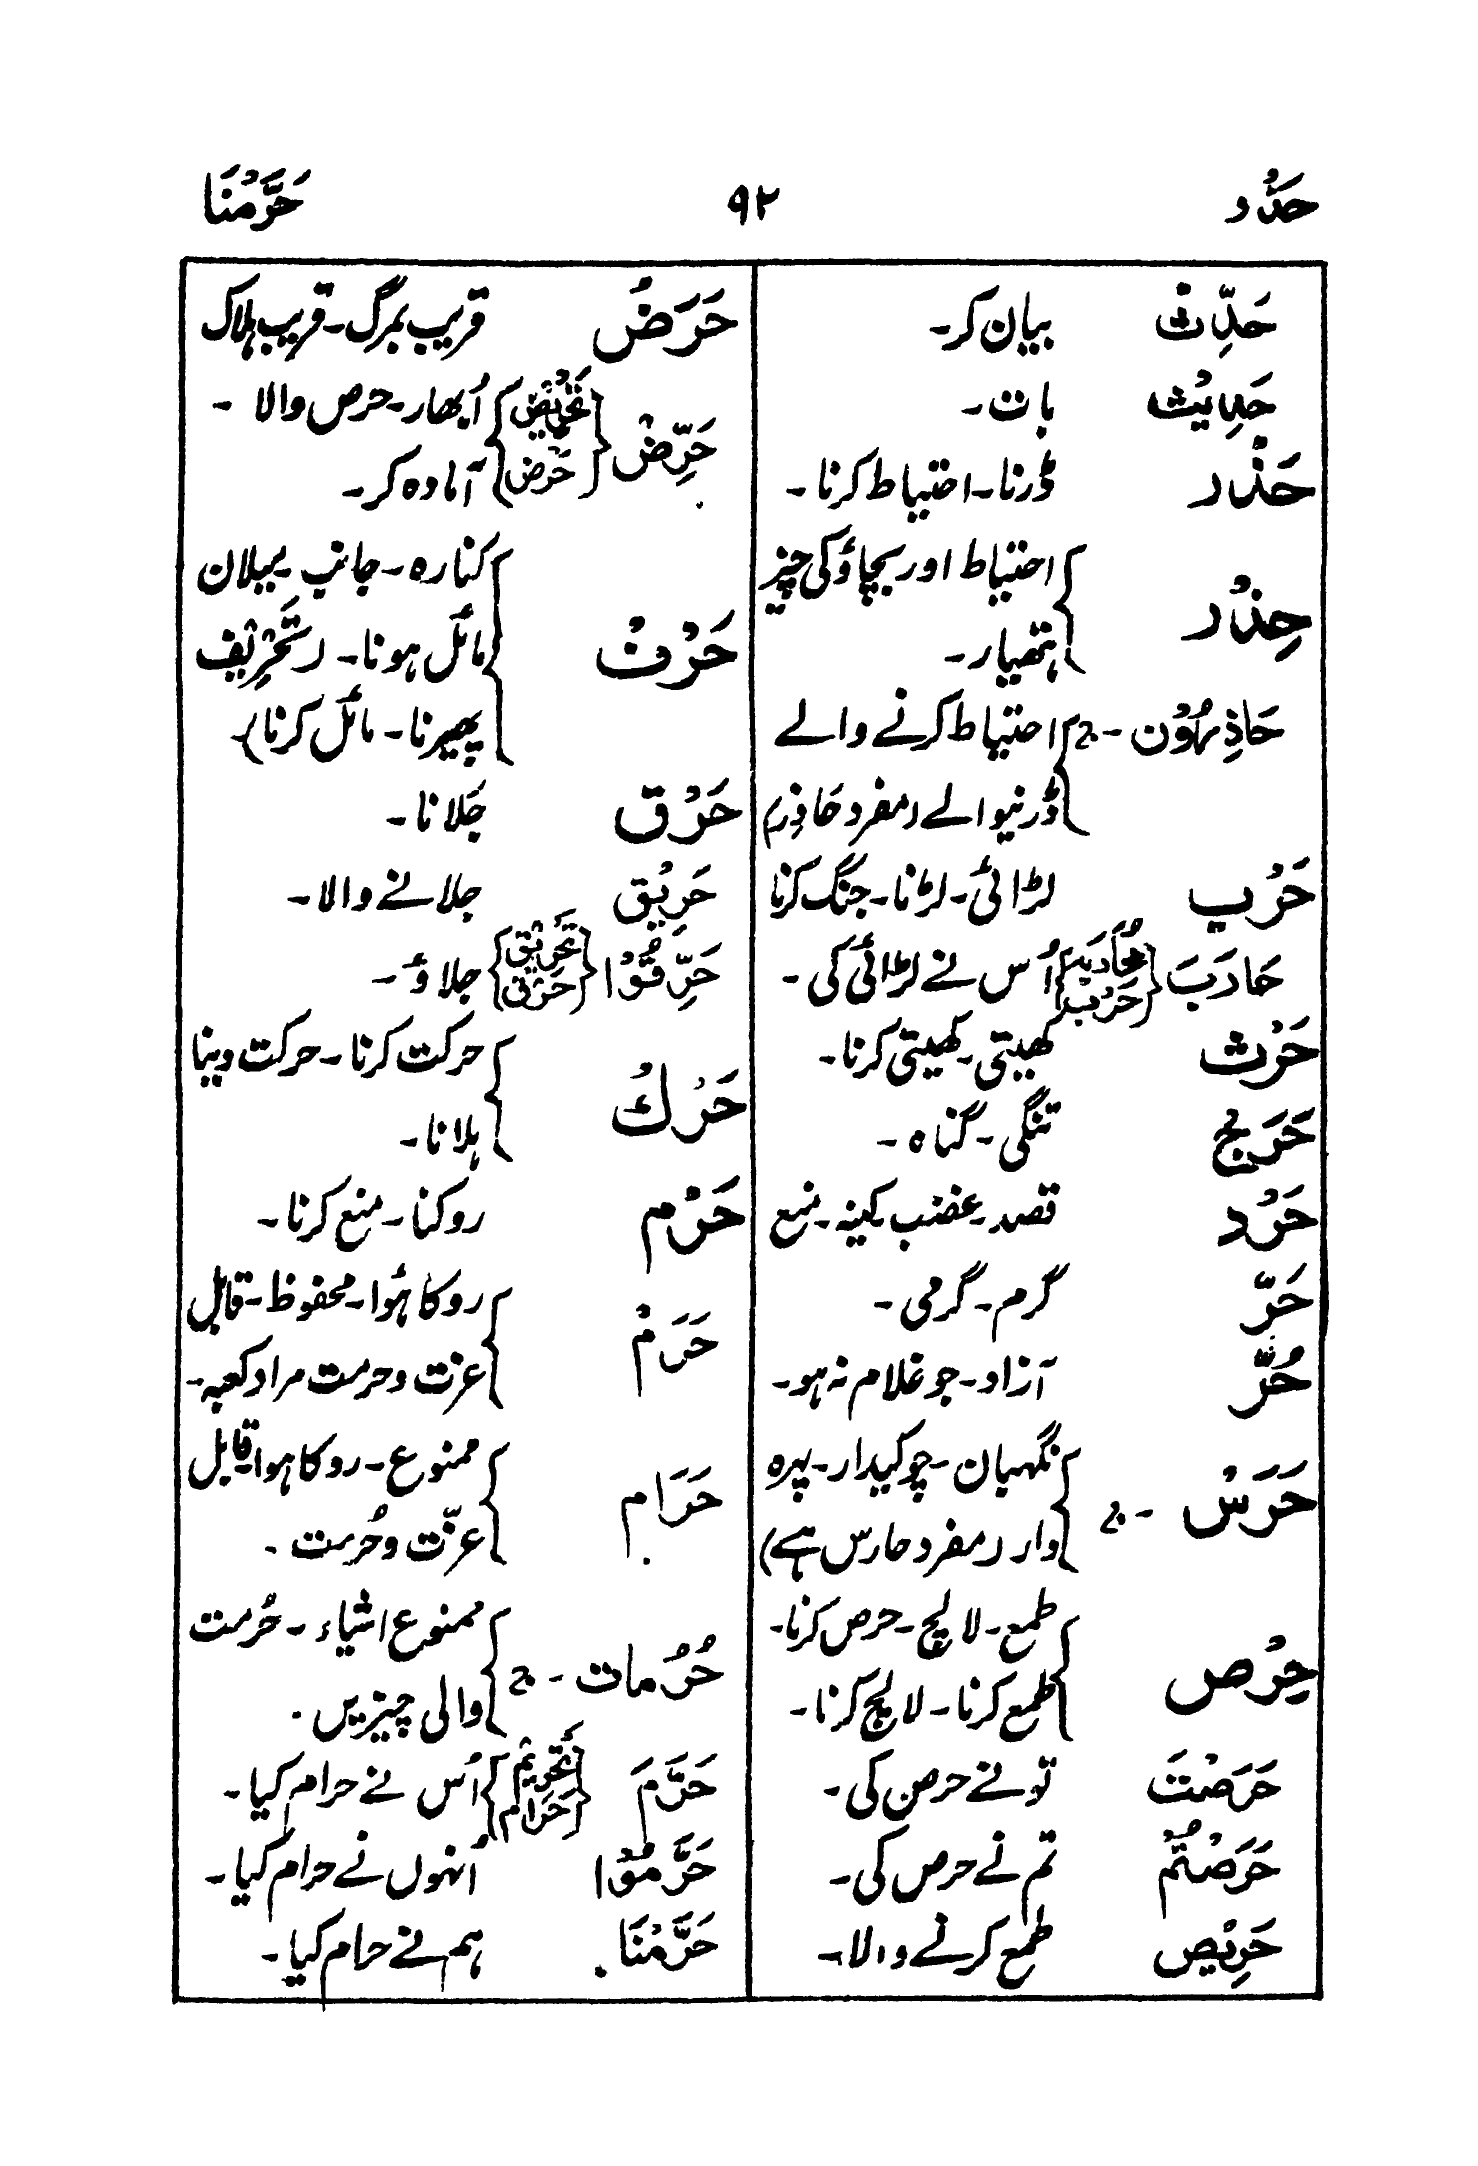 حَدُّد ۹۲ حَرَّمْنَا
حَدِّثْ بیان کر۔
حَدِیْث بات۔
حَذْر ڈرنا۔ احتیاط کرنا۔
حِذْر احتیاط اور بچاؤ کی چیز
ہتھیار۔
حَاذِرُوْن ۔ ج احتیاط کرنے والے
ڈرنیوالے (مفرد حَاذِر)
حَرْب لڑائی۔ لڑنا۔ جنگ کرنا
حَارَبَ {مُحَارَبَہ حَرْب} اُس نے لڑائی کی ۔
حَرْث کھیتی۔ کھیتی کرنا۔
حَرَج تنگی ۔ گناہ ۔
حَرْد قصد۔ غضب۔ کینہ ۔ منع
حَرّ گرم ۔ گرمی ۔
حُرّ آزاد۔ جو غلام نہ ہو۔
حَرَسْ ۔ ج نگہبان ۔ چوکیدار۔ پہرہ
دار (مفرد حارس ہے)
حِرْص طمع۔ لالچ۔ حرص کرنا۔
طمع کرنا ۔ لالچ کرنا ۔
حَرَصْتَ تو نے حرص کی ۔
حَرَصْتُمْ تم نے حرص کی۔
حَرِیْص طمع کرنے والا۔
حَرَضْ قریب بمرگ۔ قریب ہلاک
حَرِّضْ {تَحْرِیْض حَرْض} اُبھار۔ حرص والا ۔
آمادہ کر۔
حَرْفْ کنارہ ۔ جانب ۔ میلان
مائل ہونا ۔ (تَحْرِیْف
پھیرنا ۔ مائل کرنا)
حَرْق جَلانا ۔
حَرِیْق جلانے والا ۔
حَرِّقُوْا {تَحْرِیْق حَرْق} جلاؤ ۔
حَرْكْ حرکت کرنا ۔ حرکت دینا
ہلانا ۔
حَرْم روکنا ۔ منع کرنا ۔
حَرَمْ روکا ہُوا۔ محفوظ ۔ قابل
عزت و حرمت مراد کعبہ۔
حَرَام ممنوع ۔ روکا ہوا قابل
عزّت و حُرمت ۔
حُرُمات ۔ ج ممنوع اشیاء ۔ حُرمت
والی چیزیں ۔
حَرَّمَ {تَحْرِیْم حَرَام} اُس نے حرام کیا ۔
حَرَّمُوْا اُنہوں نے حرام کیا ۔
حَرَّمْنَا ۔ ہم نے حرام کیا ۔